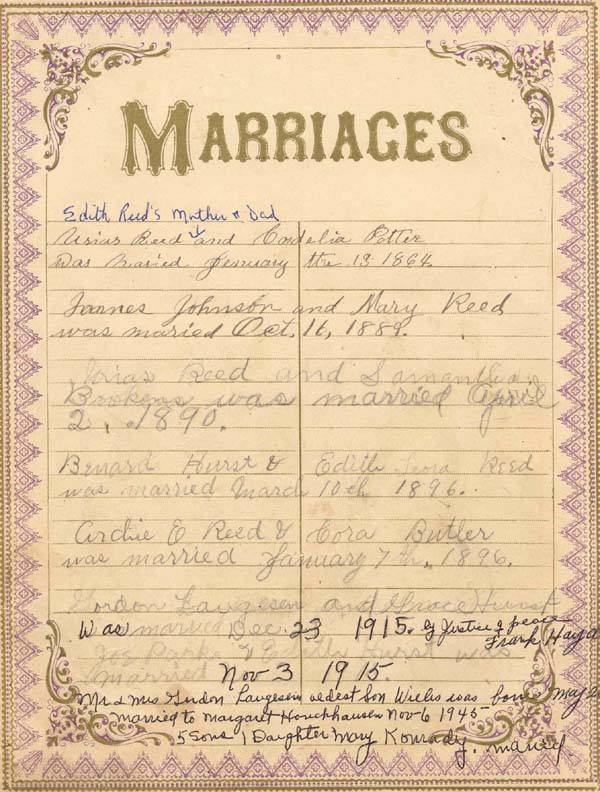 MARRIAGES
Edith Reed's Mother & Dad
Urias Reed and Cordelia Potter
was maried January the 13 1864
James Johnson and Mary Reed
was maried Oct, 16, 1889.
Urias Reed and Samantha
was married April
2, 1890.
Benard Hurst & Edith Leora Reed
was married March 10th 1896.
Archie E Reed & Cora Butler
was married January 7th, 1896.
Gordon Laugesen and Grace Hurst
Was married Dec. 23 1915. by Justice of peace
Frank Hayd
Joe Parks & Edith Hurst was
married Nov 3 1915.
Mr & Mrs Gordon Laugesen oldest son was born May 2
married to Margaret Nov 6 1945
5 Sons 1 Daughter Mary Konrady. married